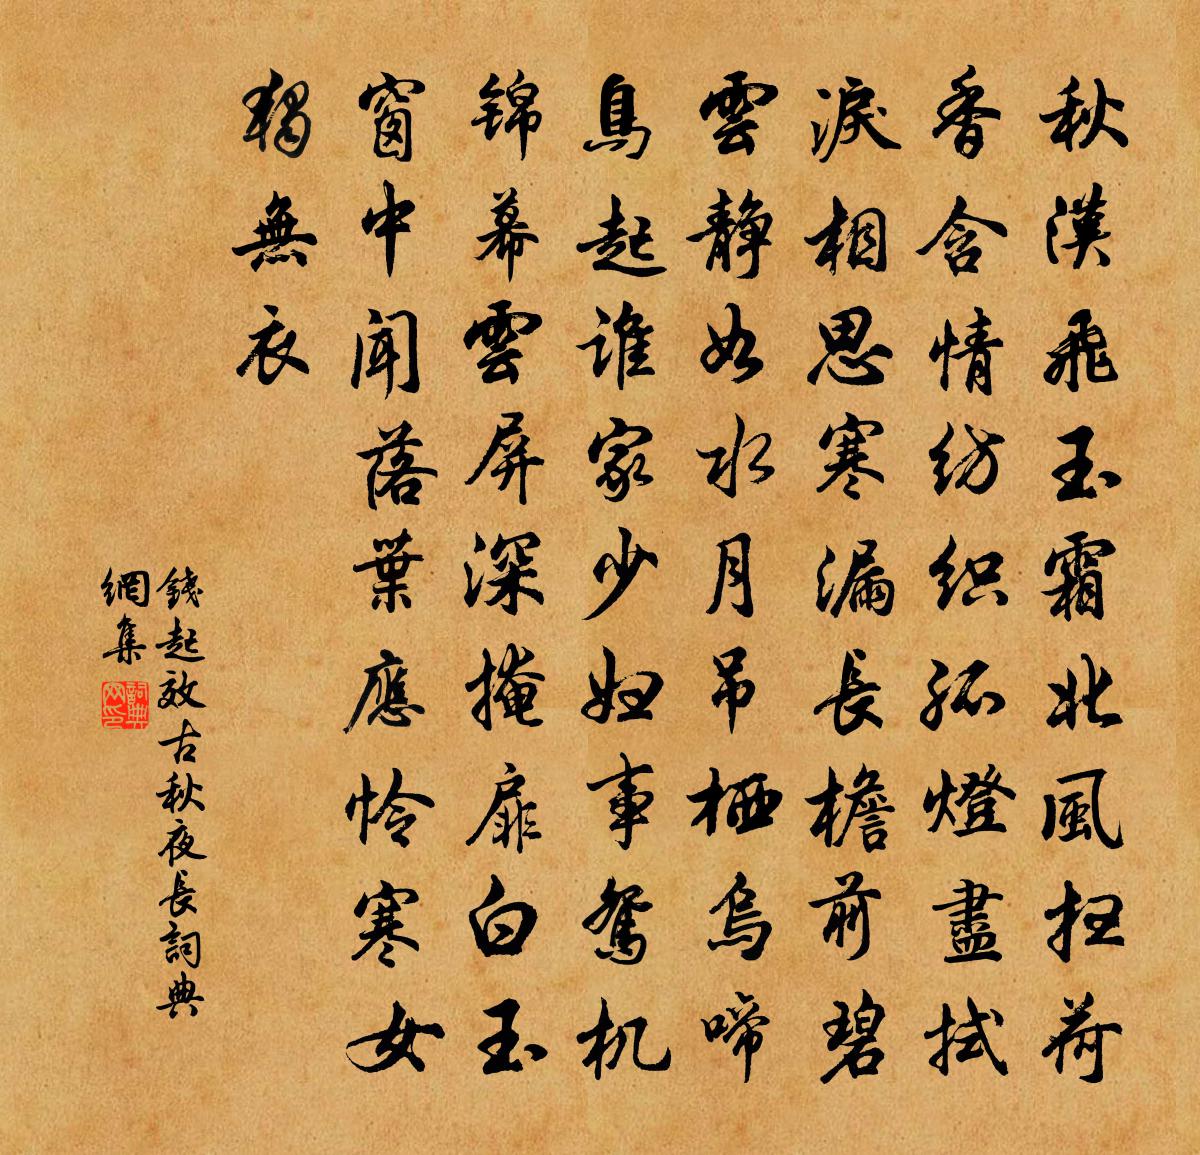 秋漢飛玉霜北風扫荷
香含情纺织孤燈盡拭
淚相思寒漏長檐前碧
雲静如水月吊栖烏啼
鳥起谁家少妇事鴛机
锦幕雲屏深掩扉白玉
窗中聞落葉應怜寒女
獨無衣
錢起效古秋夜長詞典
網集
詞典
网印